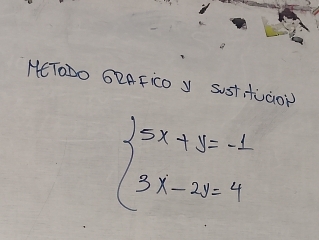 METODO GRAFICO Y SUSTITUCION
5x + y = -1
3x - 2y = 4